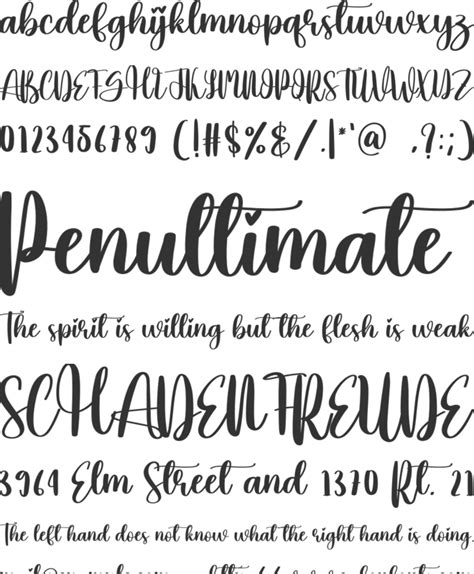 abcdefghijklmnopqrstuvwxyz
ABCDEFGHIJKLMNOPQRSTUVWXYZ
0123456789 (!#$%&/.|*'@ .?:;)
Penultimate
The spirit is willing but the flesh is weak
SCHADENFREUDE
3964 Elm Street and 1370 Rt. 21
The left hand does not know what the right hand is doing.